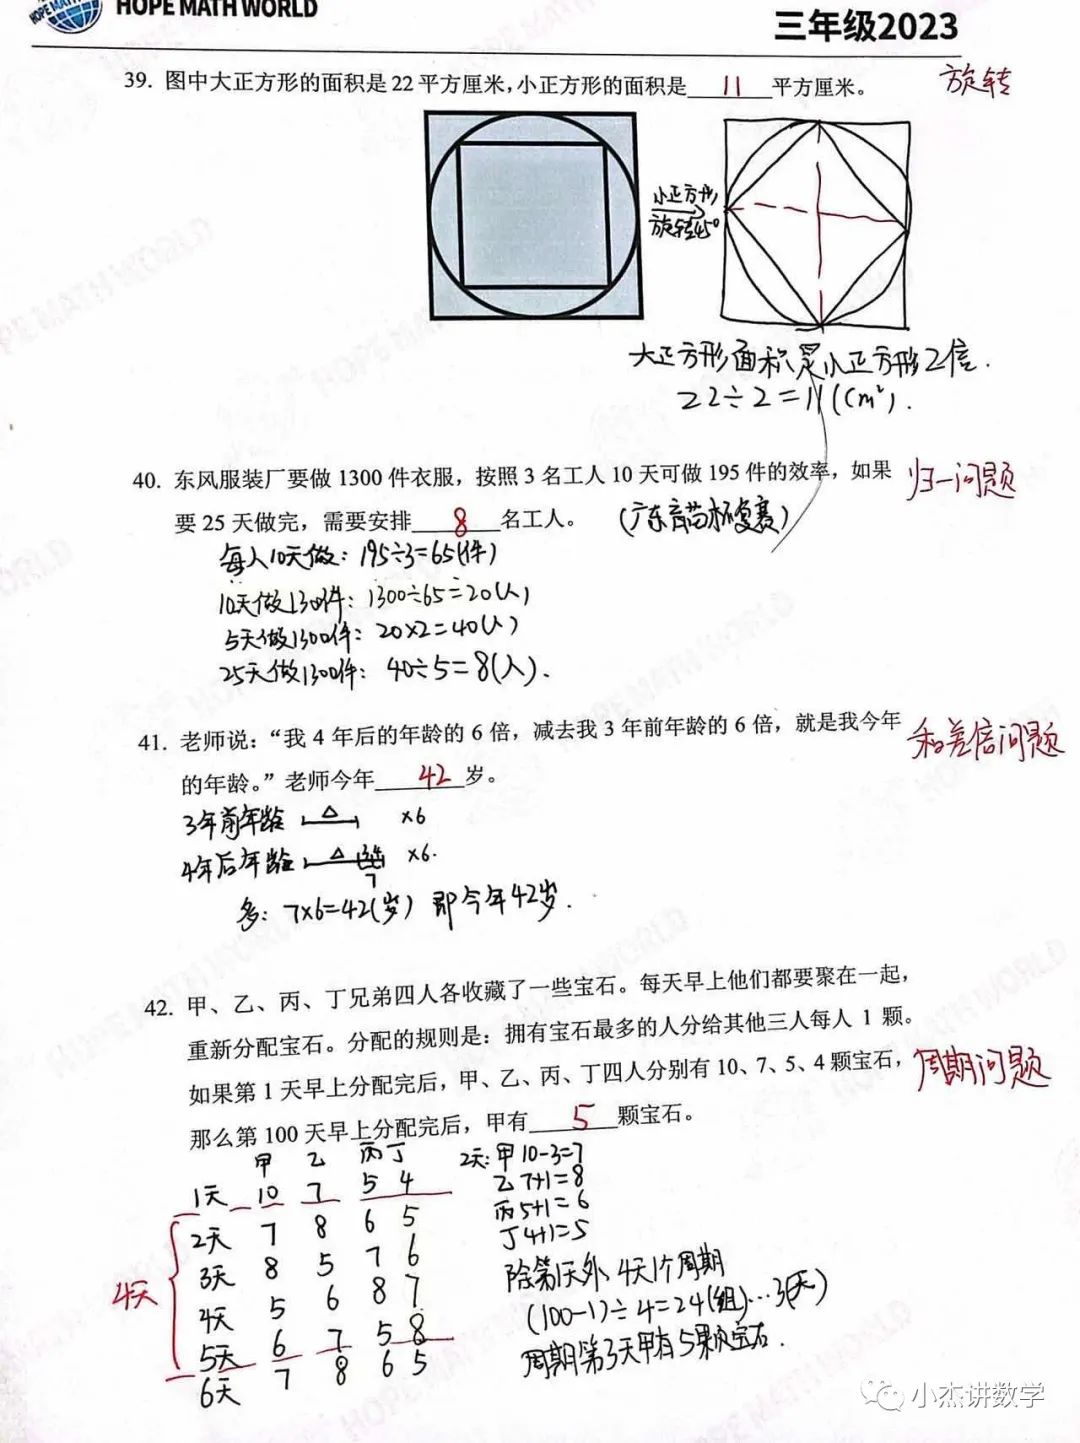 HOPE MATH WORLD
三年级2023
39. 图中大正方形的面积是22平方厘米，小正方形的面积是 11 平方厘米。
旋转
小正方形
旋转45°
大正方形面积是小正方形2倍.
22÷2=11(cm²).
40. 东风服装厂要做1300件衣服，按照3名工人10天可做195件的效率，如果
归一问题
要25天做完，需要安排 8 名工人。
(广东育苗杯复赛)
每人10天做：195÷3=65(件)
10天做1300件：1300÷65=20(人)
5天做1300件：20×2=40(人)
25天做1300件：40÷5=8(人).
41. 老师说：“我4年后的年龄的6倍，减去我3年前年龄的6倍，就是我今年
和差倍问题
的年龄。”老师今年 42 岁。
3年前年龄 △ ×6
4年后年龄 △ 3 4 ×6.
7
多：7×6=42(岁) 即今年42岁.
42. 甲、乙、丙、丁兄弟四人各收藏了一些宝石。每天早上他们都要聚在一起，
重新分配宝石。分配的规则是：拥有宝石最多的人分给其他三人每人1颗。
如果第1天早上分配完后，甲、乙、丙、丁四人分别有10、7、5、4颗宝石，
周期问题
那么第100天早上分配完后，甲有 5 颗宝石。
甲 乙 丙 丁
1天 10 7 5 4
2天 7 8 6 5
3天 8 5 7 6
4天 5 6 8 7
5天 6 7 5 8
6天 7 8 6 5
4天
2天：甲10-3=7
乙7+1=8
丙5+1=6
丁4+1=5
除第1天外，4天1个周期
(100-1)÷4=24(组)…3(天)
周期第3天甲有5颗宝石.
小杰讲数学